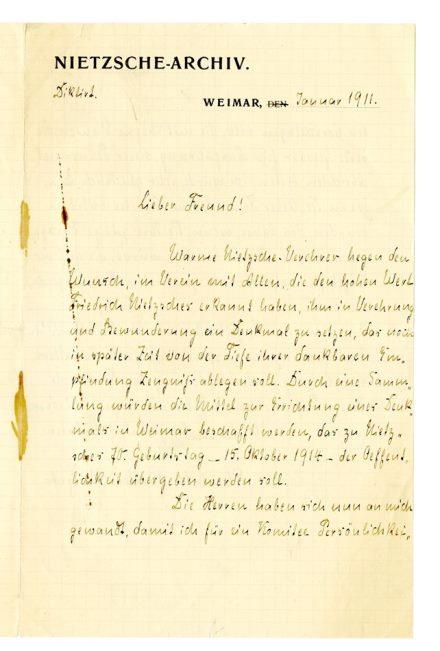 NIETZSCHE-ARCHIV.
Diktirt.
WEIMAR, DEN Januar 1911.
Lieber Freund!
Warme Nietzsche-Verehrer hegen den
Wunsch, im Verein mit Allen, die den hohen Wert
Friedrich Nietzsches erkannt haben, ihm in Verehrung
und Bewunderung ein Denkmal zu setzen, das noch
in später Zeit von der Tiefe ihrer dankbaren Em-
pfindung Zeugniß ablegen soll. Durch eine Samm-
lung würden die Mittel zur Errichtung eines Denk-
mals in Weimar beschafft werden, das zu Nietz-
sches 70. Geburtstag – 15. Oktober 1914 – der Oeffent-
lichkeit übergeben werden soll.
Die Herren haben sich nun an mich
gewandt, damit ich für ein Komitee Persönlichkei-